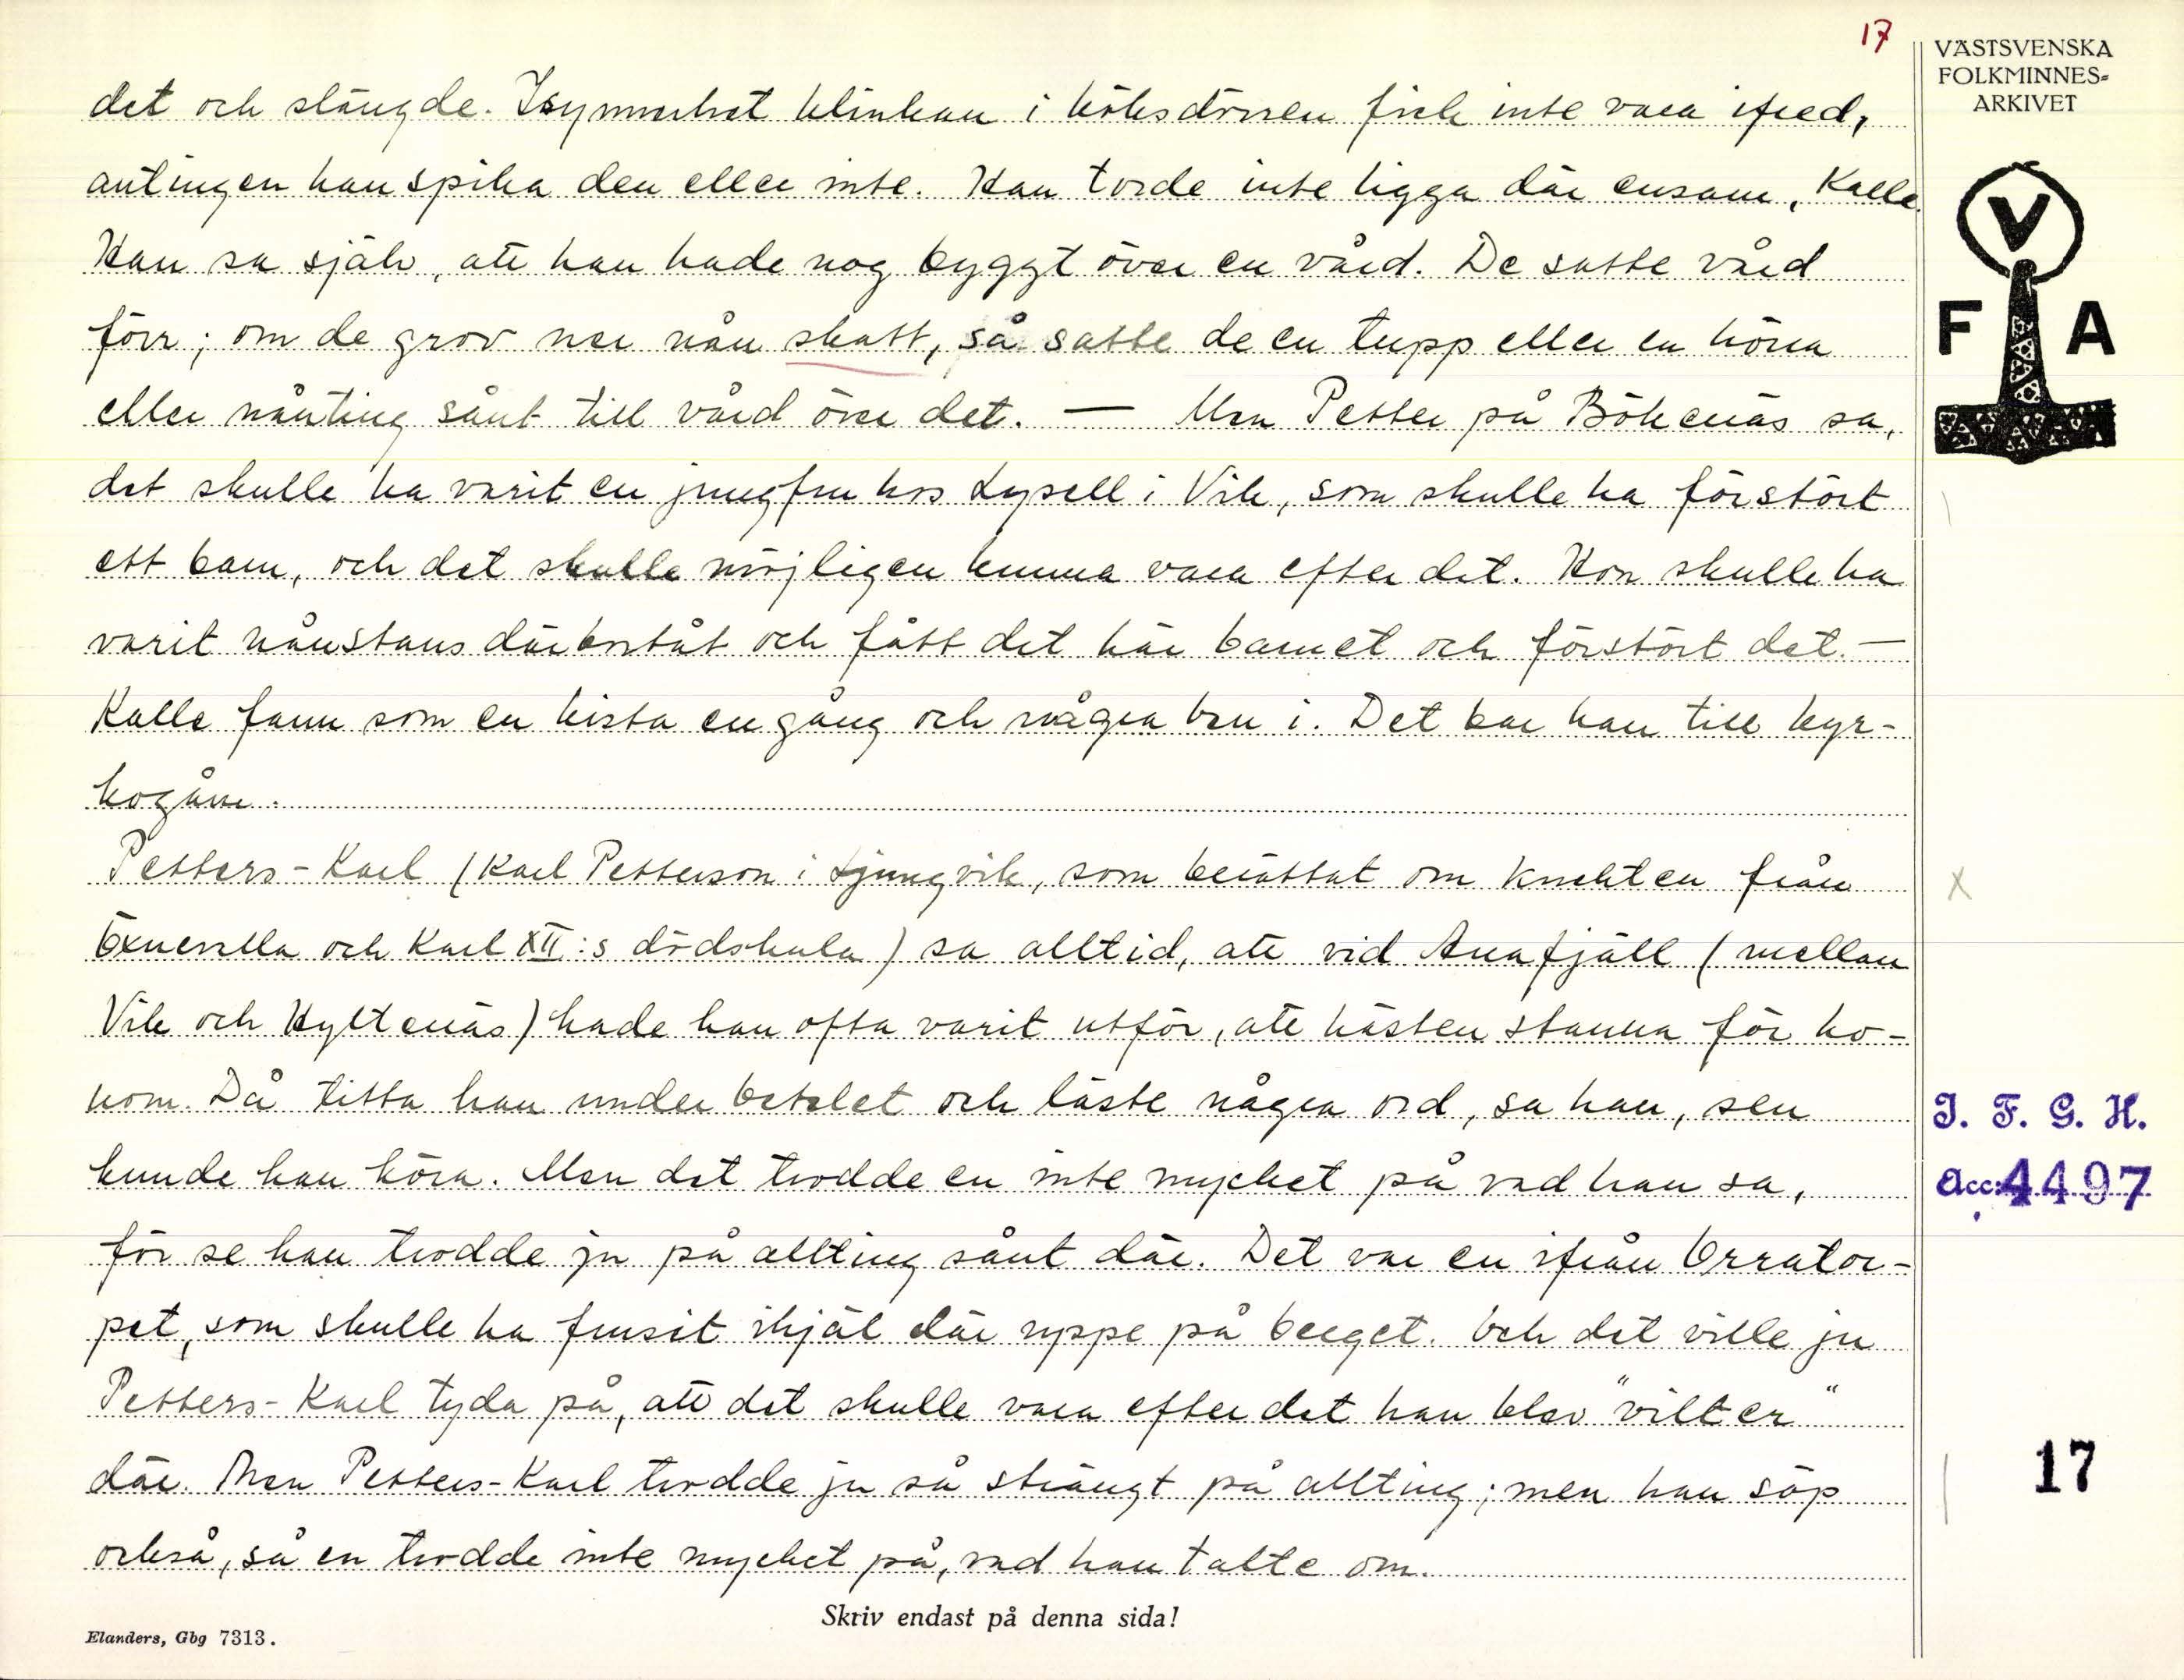 17
VÄSTSVENSKA
FOLKMINNES-
ARKIVET
det och slängde. Isynnerhet klinkan i köksdörren fick inte vara ifred,
antingen han spika den eller inte. Han torde inte ligga där ensam, Kalle.
Han sa själv, att han hade nog byggt över en vård. De satte vård
förr; om de grov ner nån skatt, så satte de en tupp eller en höna
eller nånting sånt till vård över det. — Men Petter på Bökenäs sa,
det skulle ha varit en jungfru hos Lysell i Vik, som skulle ha förstört
ett barn, och det skulle möjligen kunna vara efter det. Hon skulle ha
varit nånstans därbortåt och fått det här barnet och förstört det. —
Kalle fann som en kista en gång och några ben i. Det bar han till kyr-
kogårn.
Petters-Karl (Karl Petterson i Ljungvik, som berättat om knekten från
Öxnevalla och Karl XII:s dödskula) sa alltid, att vid Anafjäll (mellan
Vik och Hyltenäs) hade han ofta varit utför, att hästen stanna för ho-
nom. Då titta han under betslet och läste några ord, sa han, sen
kunde han köra. Men det trodde en inte mycket på vad han sa,
för se han trodde ju på allting sånt där. Det var en ifrån Orrator-
pet, som skulle ha frusit ihjäl där uppe på berget. Och det ville ju
Petters-Karl tyda på, att det skulle vara efter det han blev "vilter"
där. Men Petters-Karl trodde ju så strängt på allting; men han söp
också, så en trodde inte mycket på, vad han talte om.
V
F A
I. F. G. H.
Acc: 4497
x
17
Skriv endast på denna sida!
Elanders, Gbg 7313.